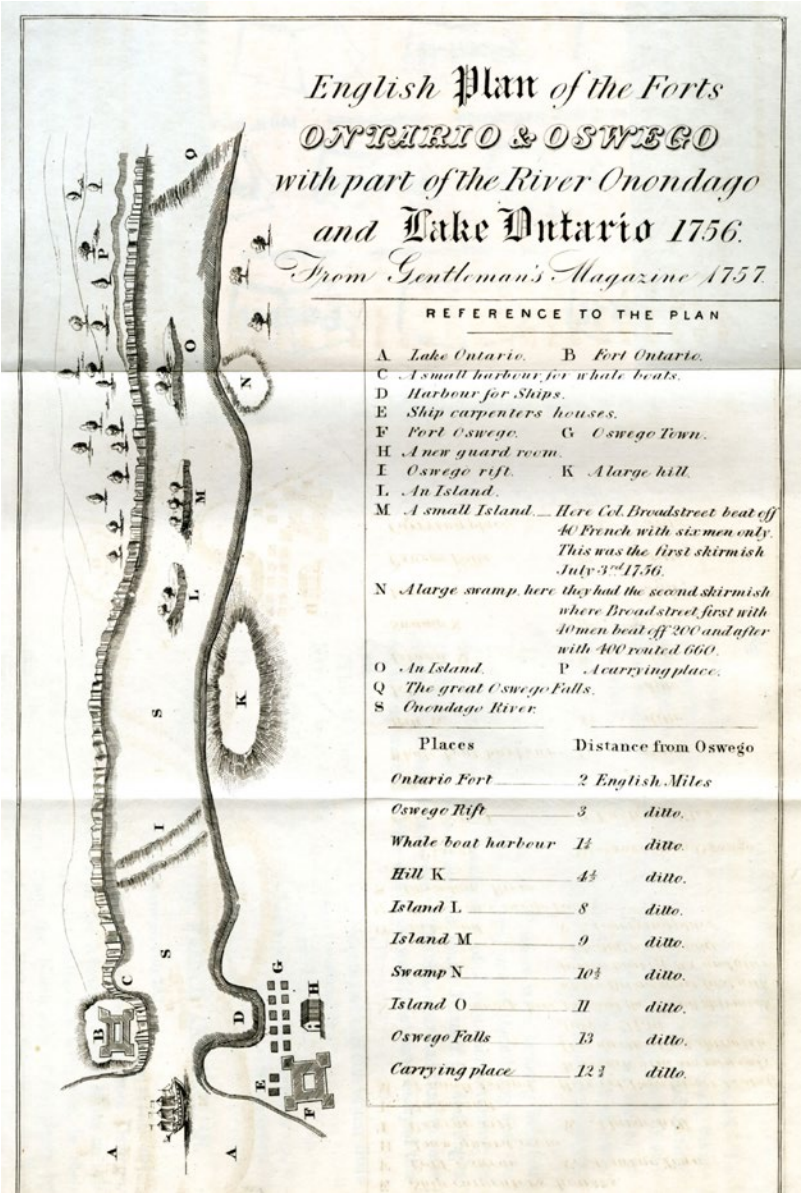 English Plan of the Forts
ONTARIO & OSWEGO
with part of the River Onondago
and Lake Ontario 1756.
From Gentleman's Magazine 1757.
REFERENCE TO THE PLAN
A Lake Ontario. B Fort Ontario.
C A small harbour for whale boats.
D Harbour for Ships.
E Ship carpenters houses.
F Fort Oswego. G Oswego Town.
H A new guard room.
I Oswego rift. K A large hill.
L An Island.
M A small Island.__Here Col. Broadstreet beat off
40 French with six men only.
This was the first skirmish
July 3rd 1756.
N A large swamp, here they had the second skirmish
where Broadstreet first with
40 men beat off 200 and after
with 400 routed 660.
O An Island. P A carrying place.
Q The great Oswego Falls.
S Onondago River.
Places Distance from Oswego
Ontario Fort 2 English Miles
Oswego Rift 3 ditto.
Whale boat harbour 1¼ ditto.
Hill K 4½ ditto.
Island L 8 ditto.
Island M 9 ditto.
Swamp N 10½ ditto.
Island O 11 ditto.
Oswego Falls 13 ditto.
Carrying place 12¾ ditto.
Q
P
O
N
M
L
K
S
I
S
C
B
D
G
H
E
F
A
A